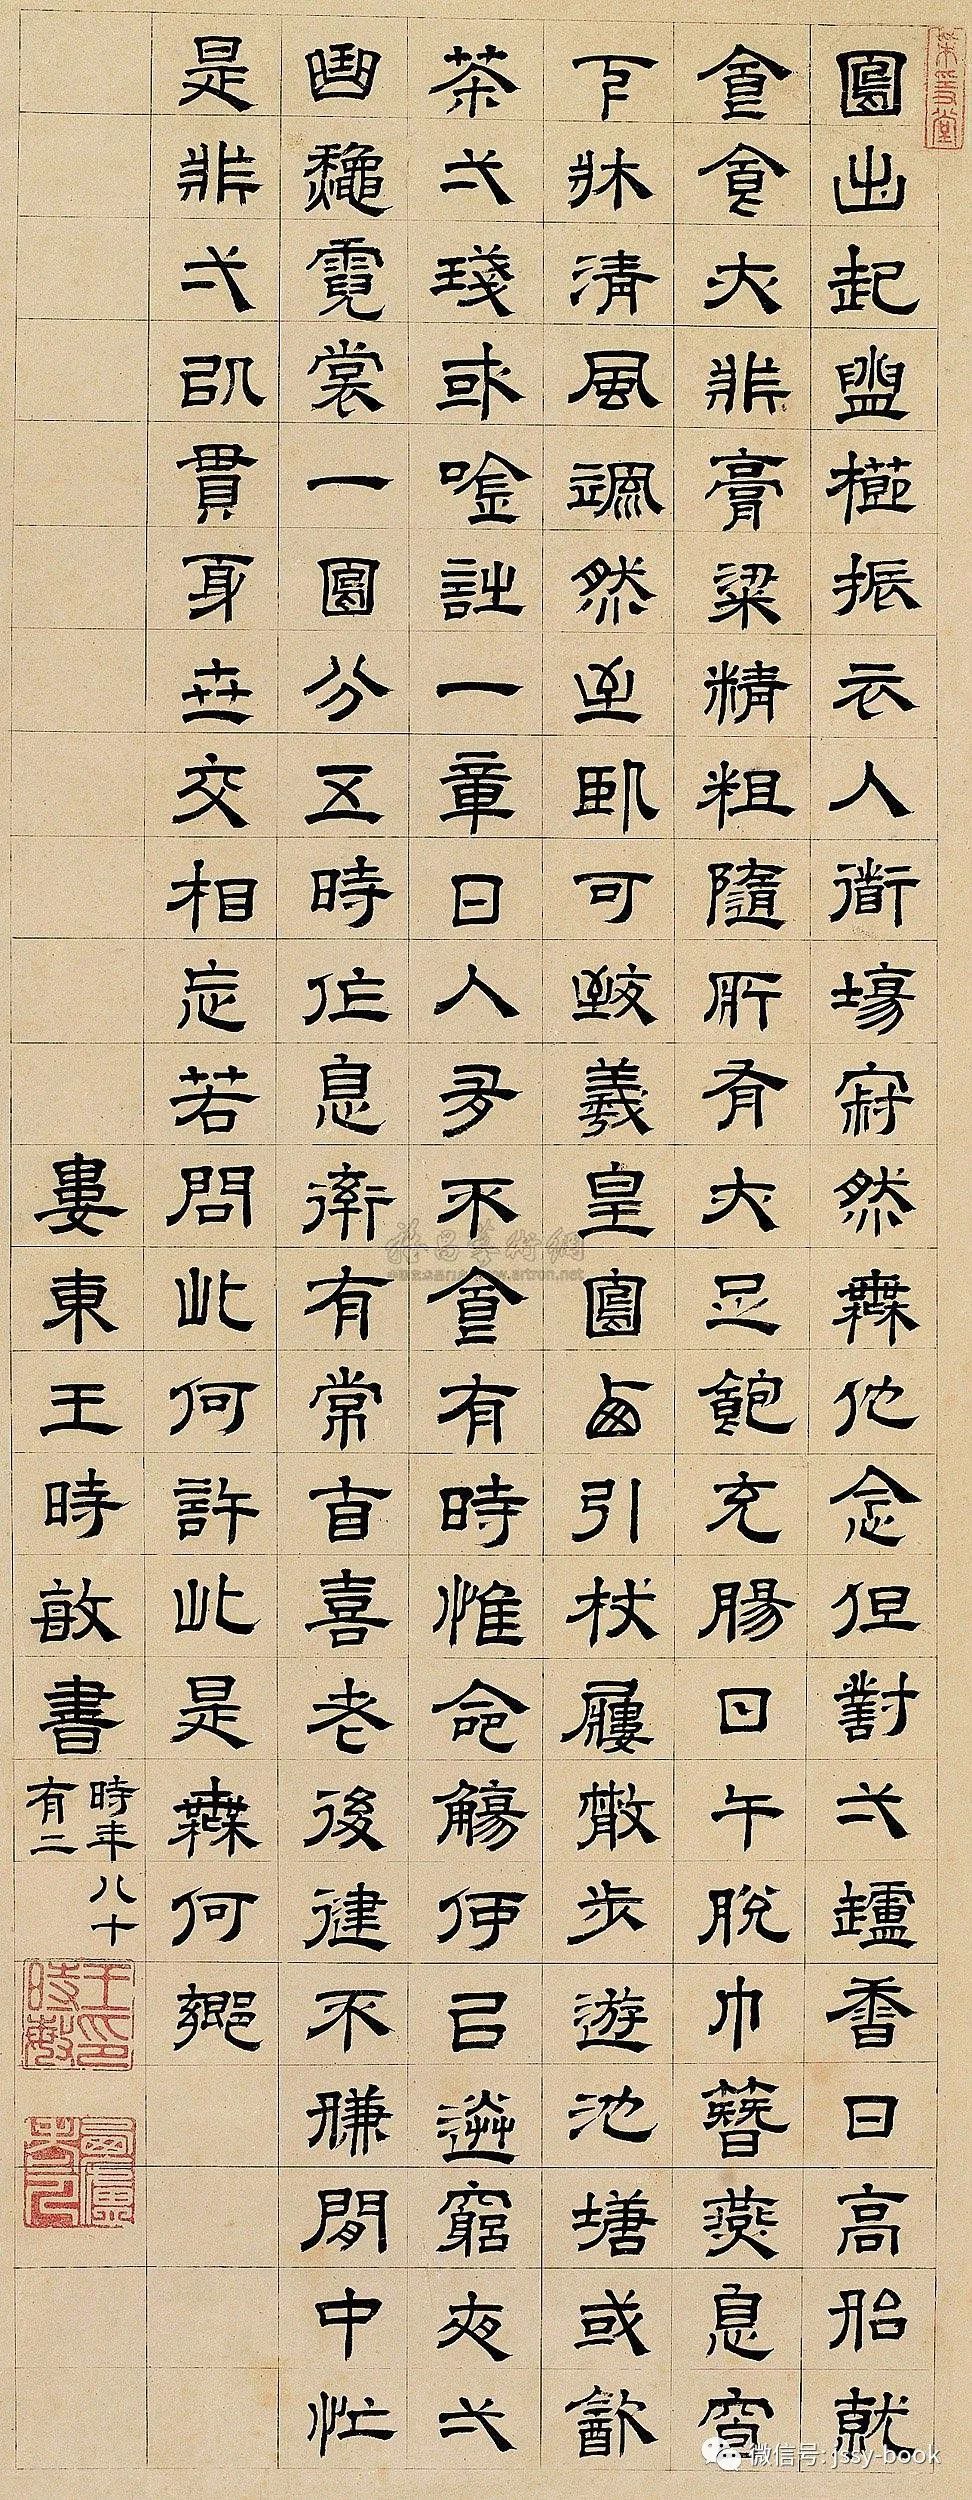 日出起盥櫛振衣入衟場寂然無他念但對弌鑪香日高始就
食食亦非膏粱精粗隨所有亦足飽充腸日午脫巾簪燕息窗
下牀清風颯然至臥可致羲皇日西引杖屨散步遊池塘或飲
茶弌琖或唫詩一章日入多不食有時惟命觴何以送窮夜弌
曲龝霓裳一日分五時作息衛有常自喜老後健不嫌閒中忙
是非弌以貫身世交相忘若問此何許此是無何鄉
婁東王時敏書
時年八十
有二
王時敏印
微信号: jssy-book